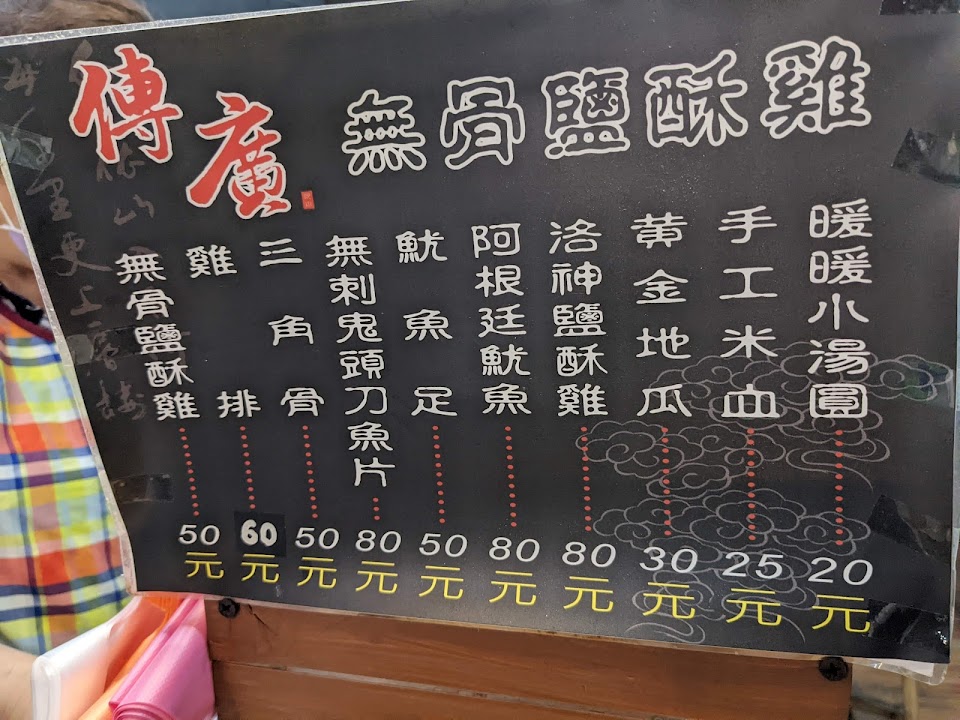 傳廣 無骨鹽酥雞
無骨鹽酥雞 50元
雞排 60元
三角骨 50元
無刺鬼頭刀魚片 80元
魷魚足 50元
阿根廷魷魚 80元
洛神鹽酥雞 80元
黃金地瓜 30元
手工米血 25元
暖暖小湯圓 20元